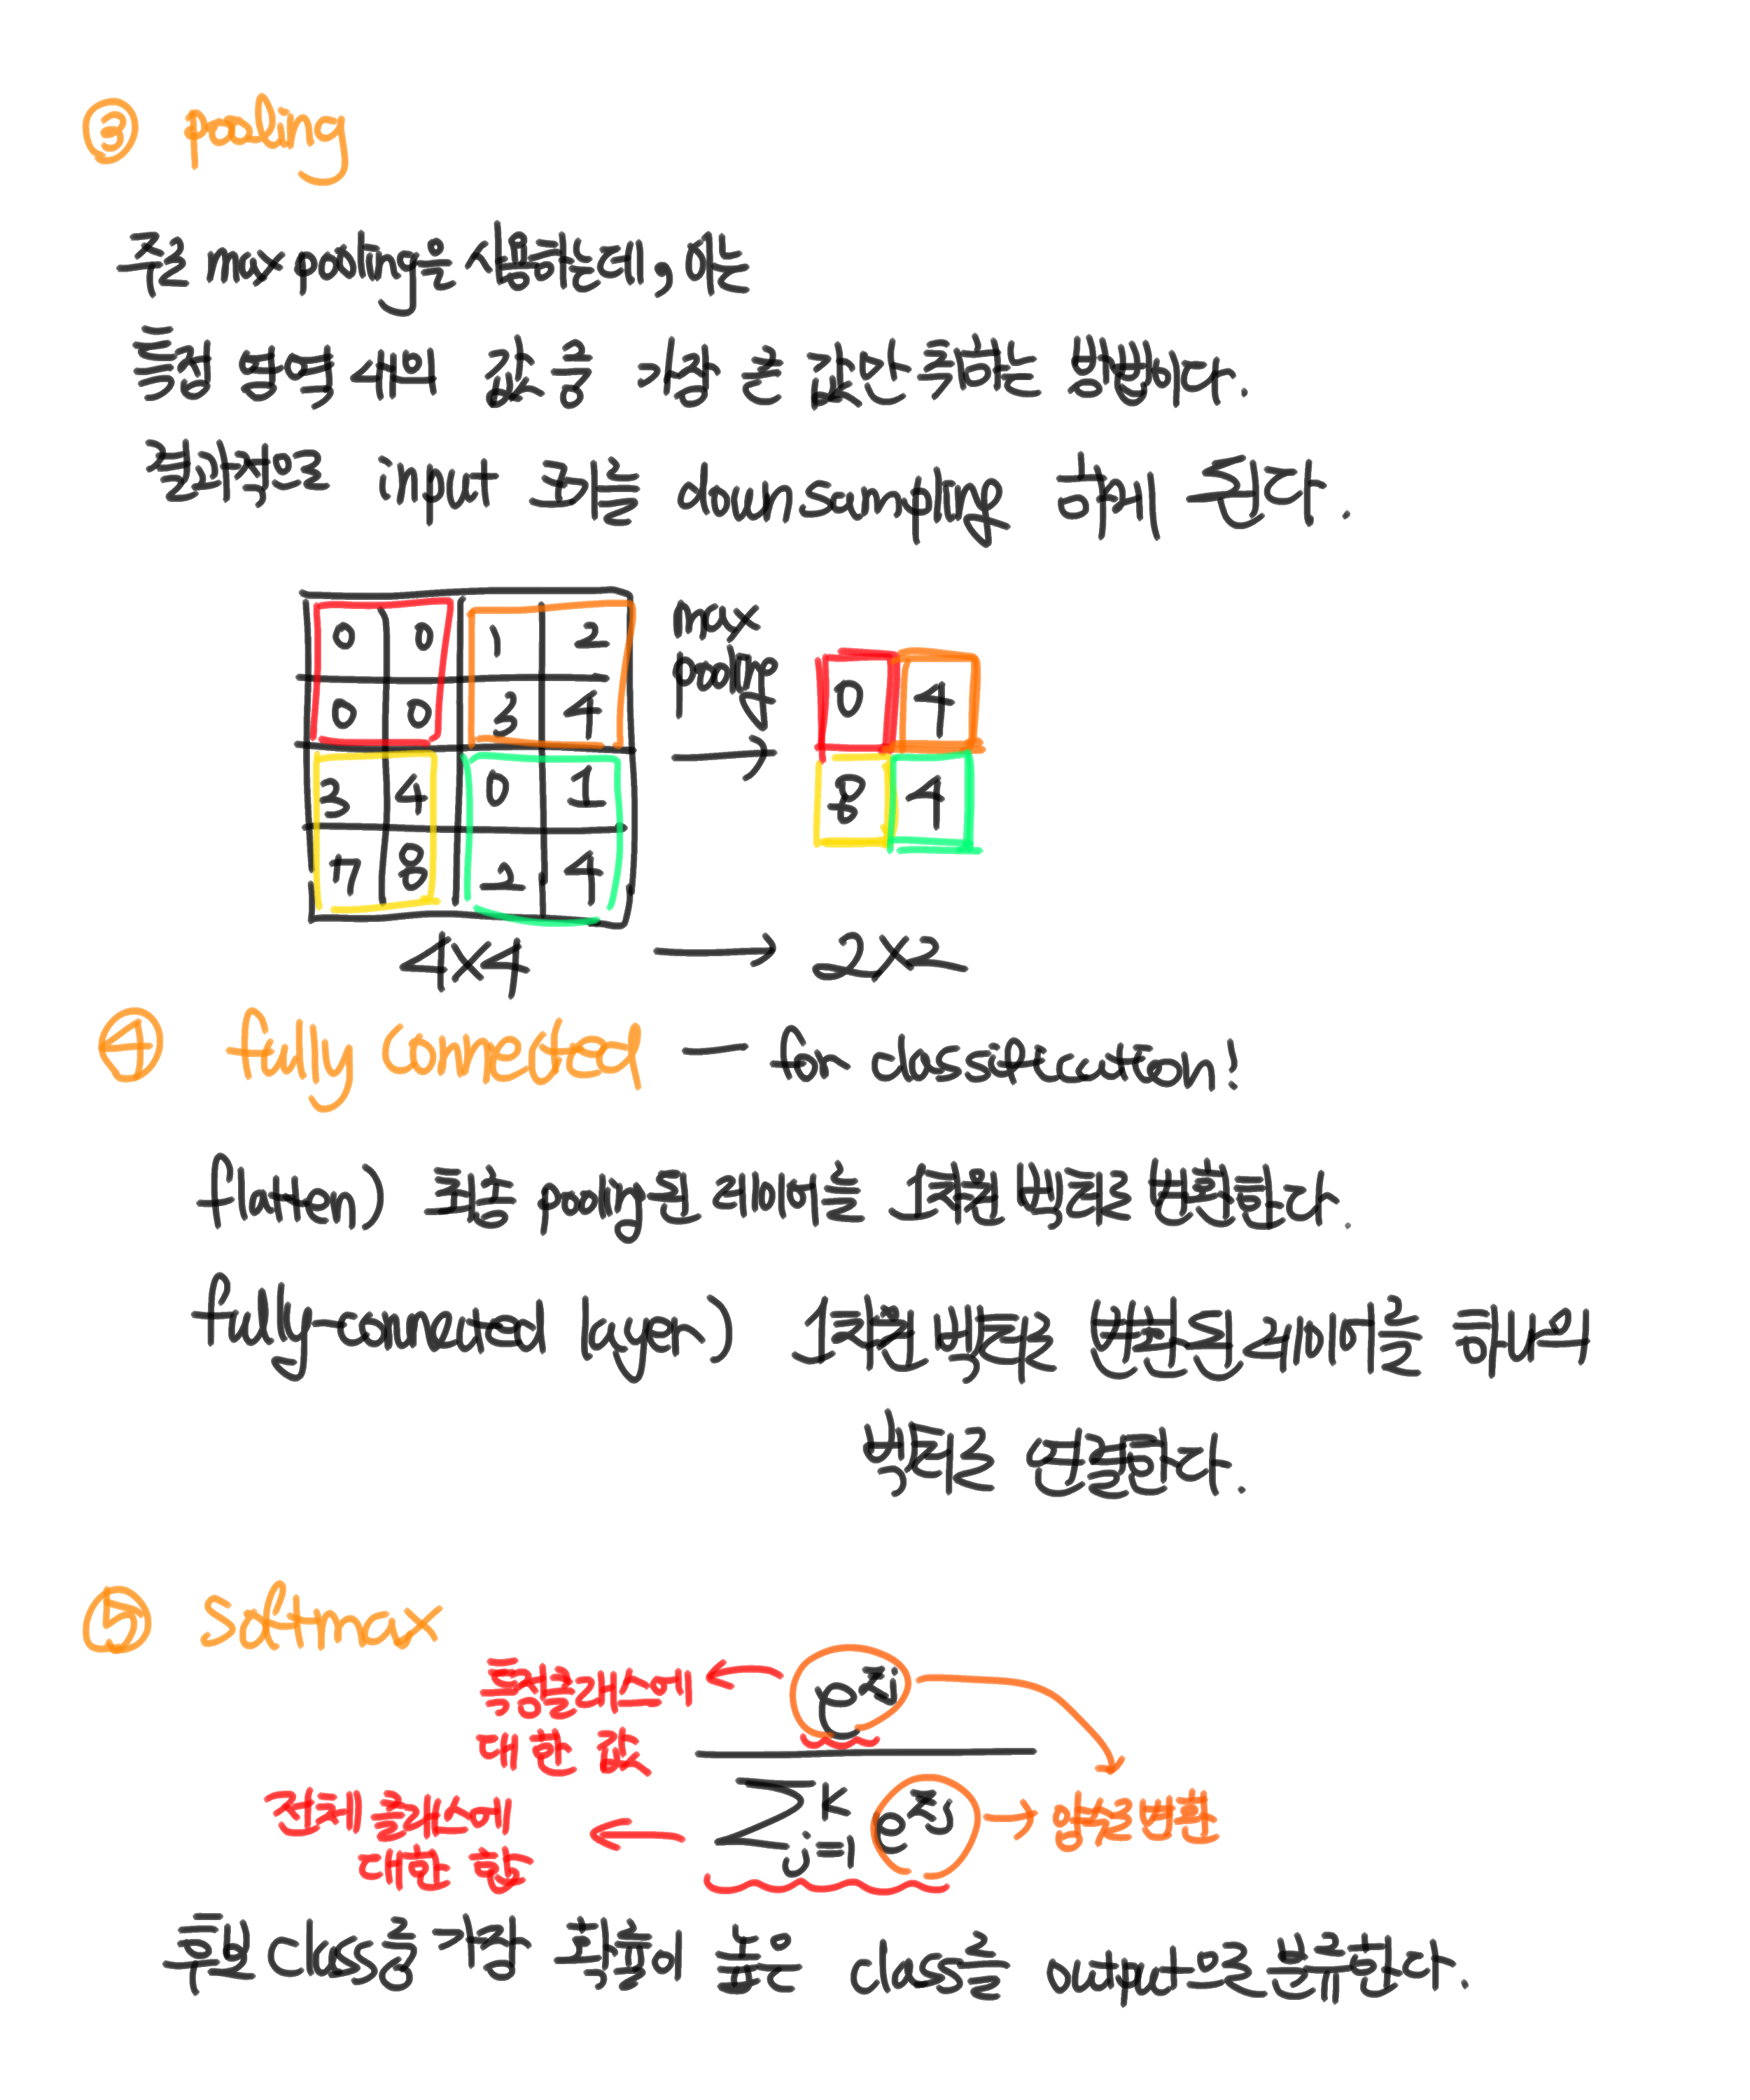 ③ pooling
주로 max pooling을 사용하는데, 이는
특정 영역 내의 값 중 가장 큰 값만 취하는 방법이다.
결과적으로 input 크기를 downsampling 하게 된다.
0 0 1 2
0 0 3 4
3 4 0 1
7 8 2 4
max
pooling
0 4
8 4
4×4 → 2×2
④ fully connected — for classification!
flatten) 최종 pooling된 레이어를 1차원 벡터로 변환한다.
fully-connected layer) 1차원 벡터로 변환된 레이어를 하나의
벡터로 연결한다.
⑤ Softmax
특정클래스에
대한 값
e^{zj}
전체 클래스에
대한 합
∑_{j=1}^{K} e^{zj}
양수로변환
후보 class중 가장 확률이 높은 class를 output으로 분류한다.